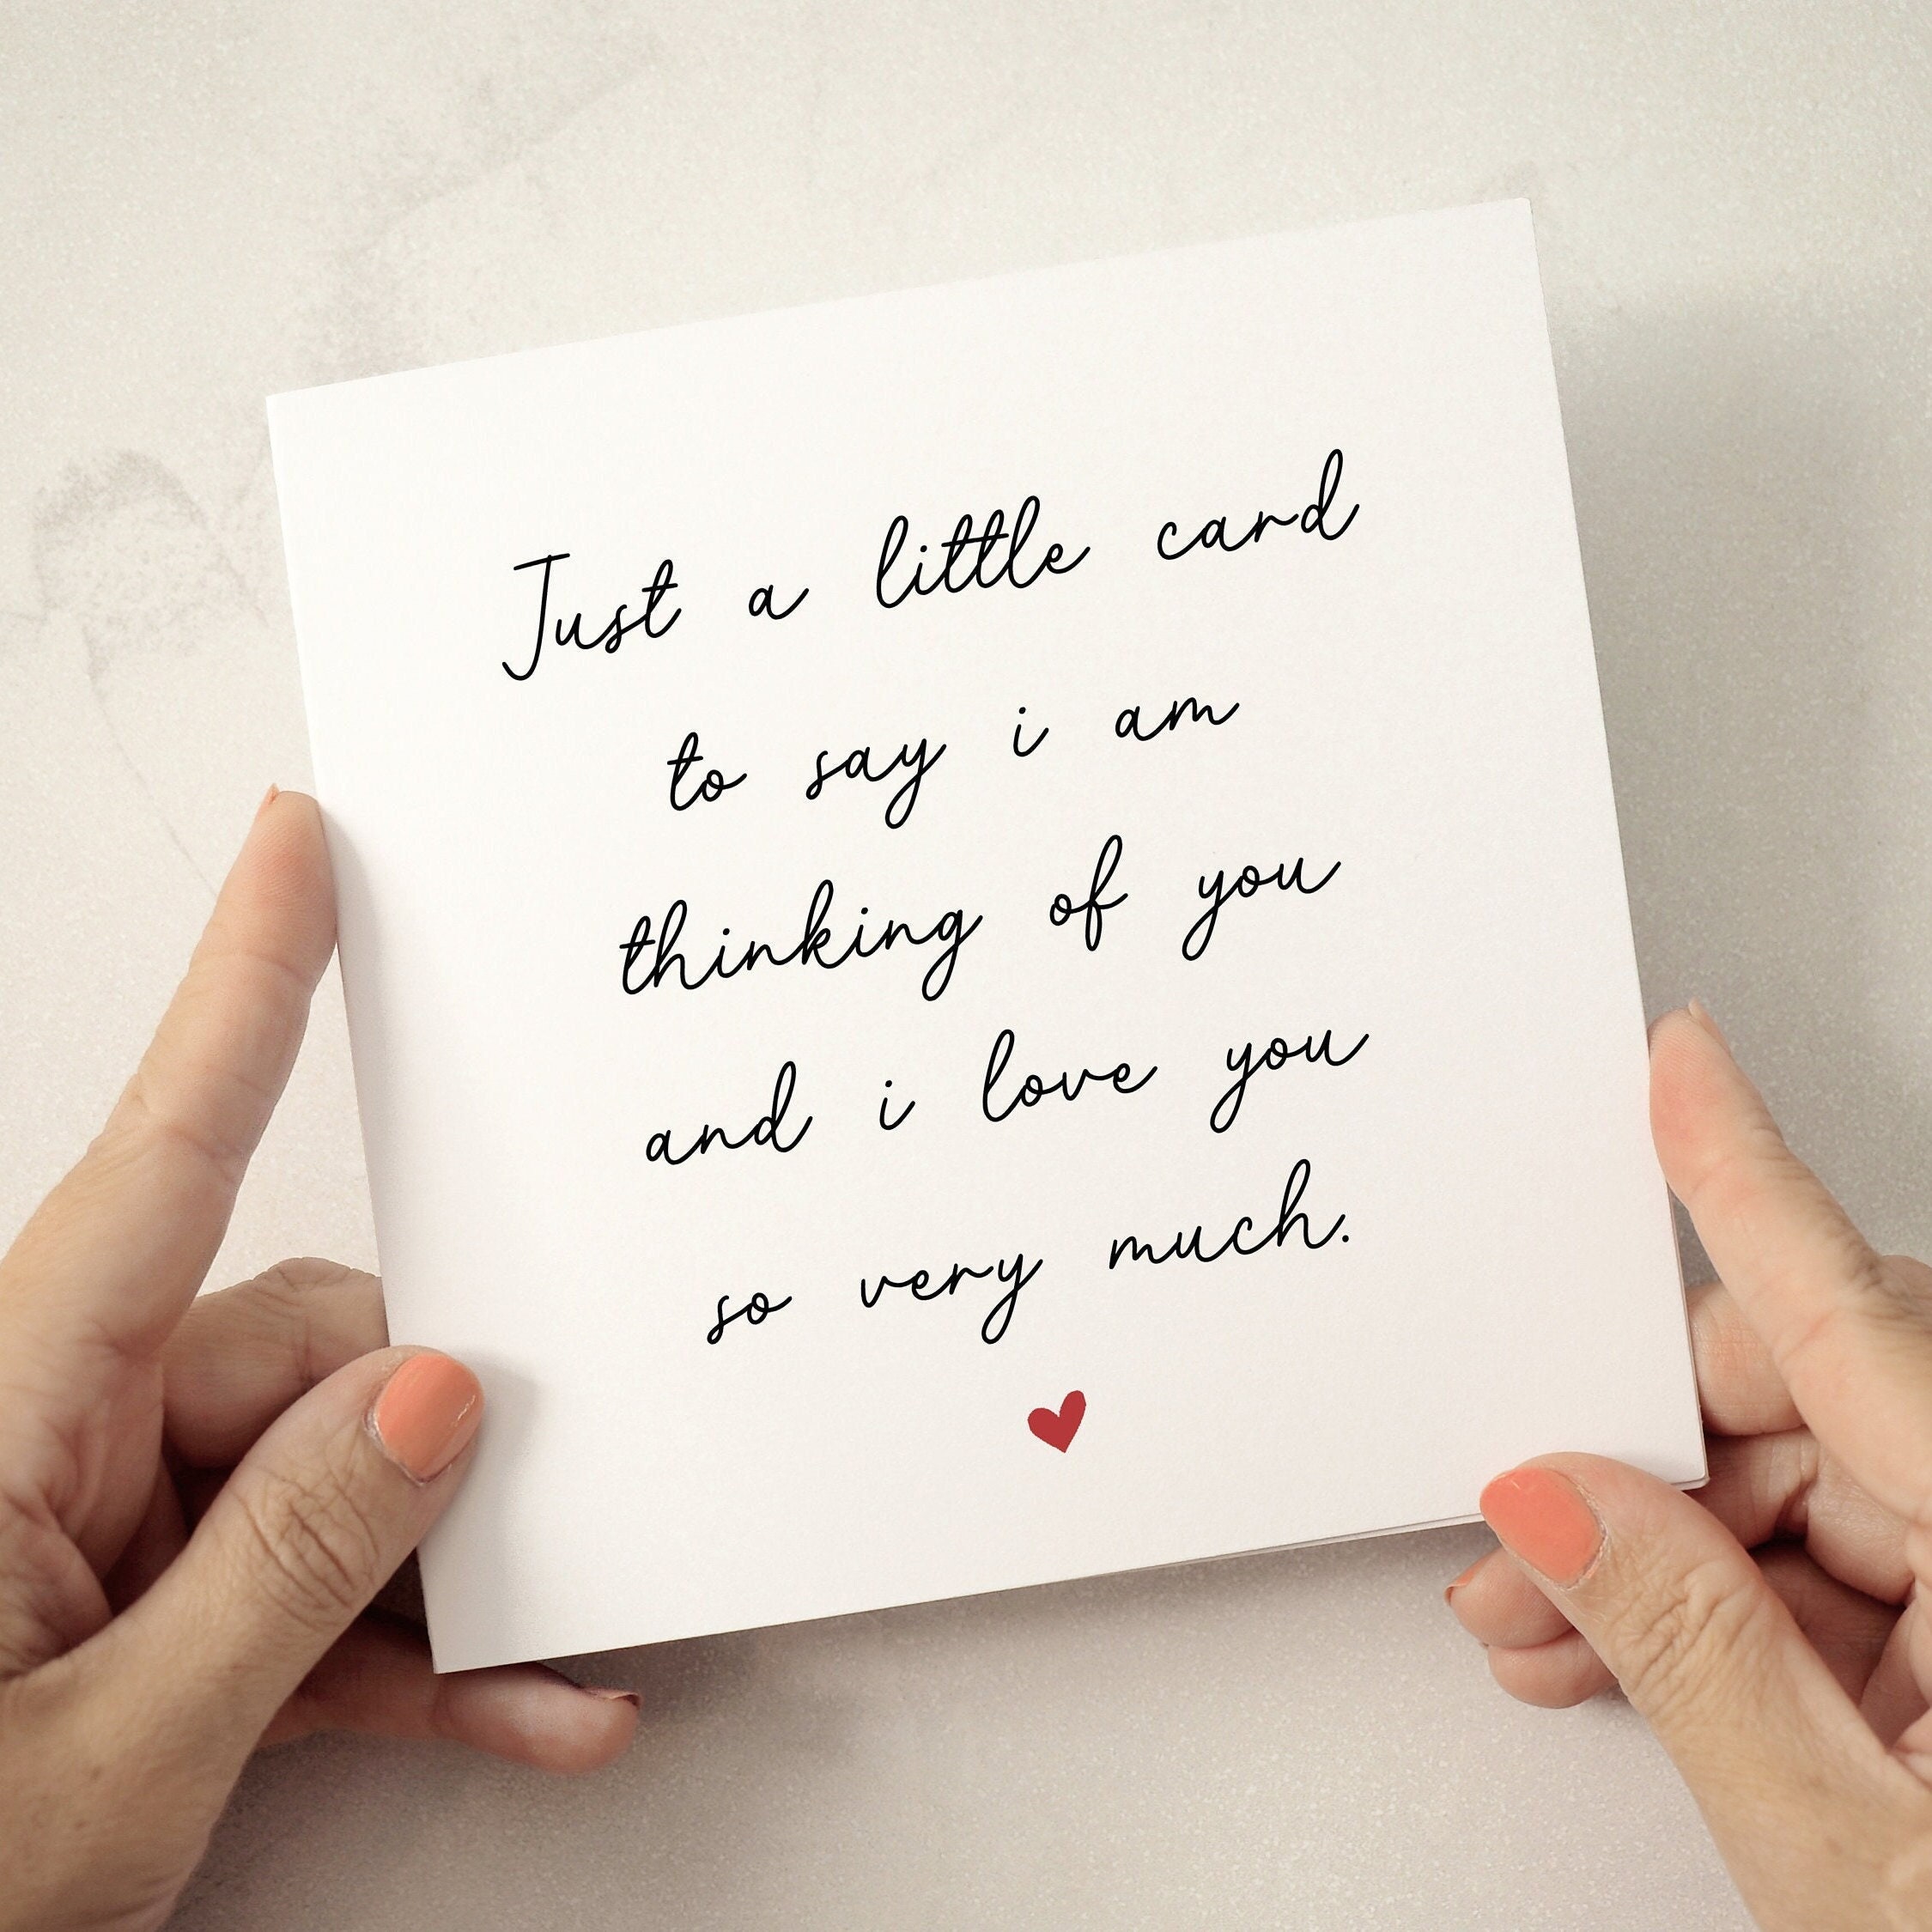 Just a little card
to say i am
thinking of you
and i love you
so very much.